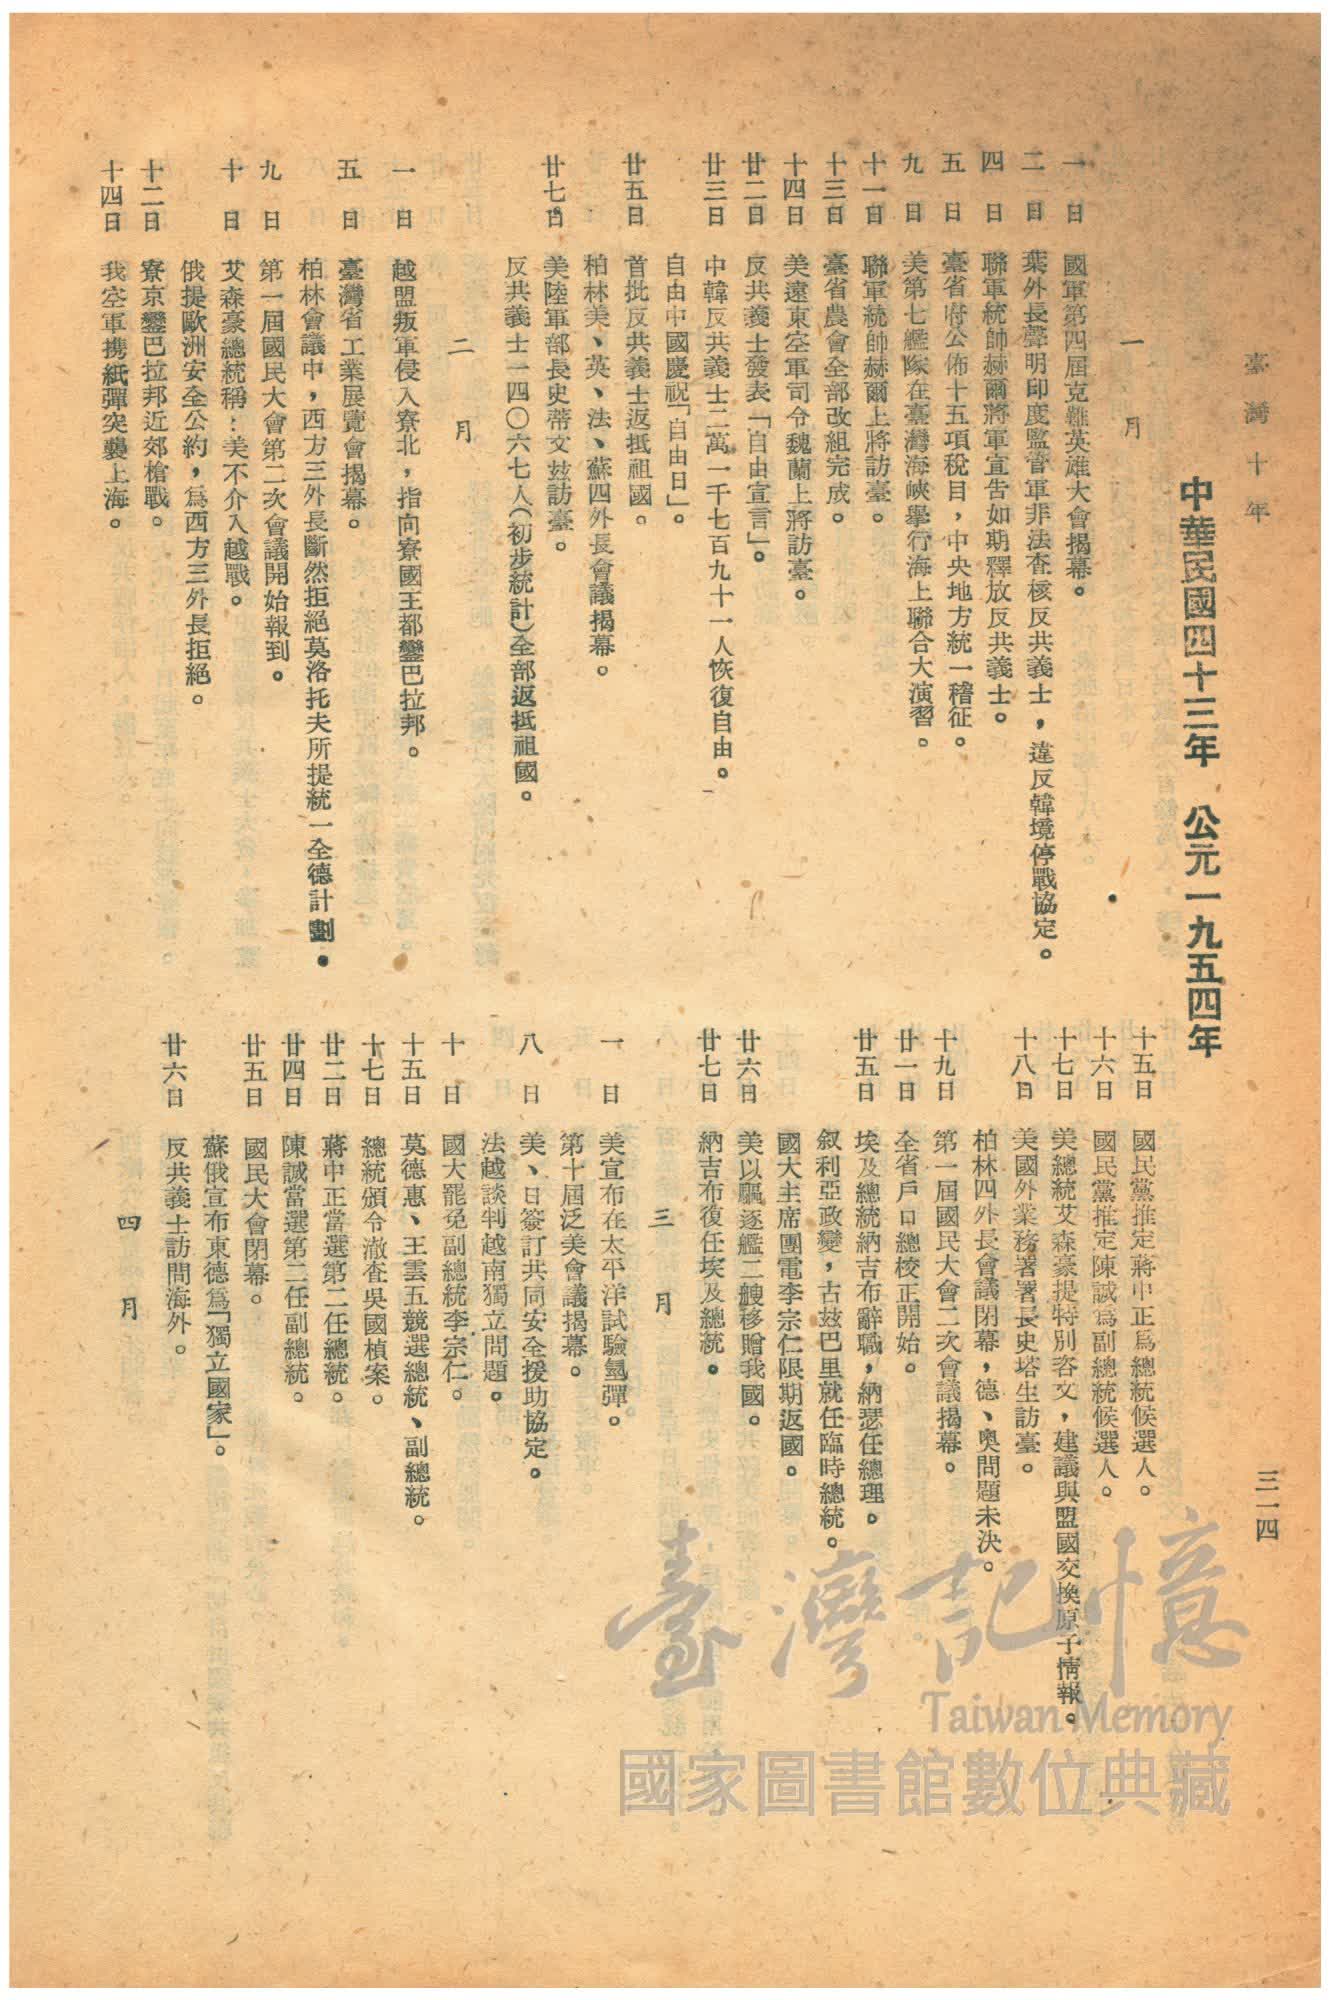 臺灣十年
中華民國四十三年　公元一九五四年
一月
一日　國軍第四屆克難英雄大會揭幕。
二日　葉外長聲明印度監管軍非法查核反共義士，違反韓境停戰協定。
四日　聯軍統帥赫爾將軍宣告如期釋放反共義士。
五日　臺省府公佈十五項稅目，中央地方統一稽征。
九日　美第七艦隊在臺灣海峽舉行海上聯合大演習。
十一日　聯軍統帥赫爾上將訪臺。
十三日　臺省農會全部改組完成。
十四日　美遠東空軍司令魏蘭上將訪臺。
廿二日　反共義士發表「自由宣言」。
廿三日　中韓反共義士二萬一千七百九十一人恢復自由。
自由中國慶祝「自由日」。
廿五日　首批反共義士返抵祖國。
柏林美、英、法、蘇四外長會議揭幕。
廿七日　美陸軍部長史蒂文玆訪臺。
反共義士一四〇六七人(初步統計)全部返抵祖國。
二月
一日　越盟叛軍侵入寮北，指向寮國王都鑾巴拉邦。
五日　臺灣省工業展覽會揭幕。
柏林會議中，西方三外長斷然拒絕莫洛托夫所提統一全德計劃。
九日　第一屆國民大會第二次會議開始報到。
十日　艾森豪總統稱：美不介入越戰。
俄提歐洲安全公約，爲西方三外長拒絕。
十二日　寮京鑾巴拉邦近郊槍戰。
十四日　我空軍携紙彈突襲上海。
十五日　國民黨推定蔣中正爲總統候選人。
十六日　國民黨推定陳誠爲副總統候選人。
十七日　美總統艾森豪提特別咨文，建議與盟國交換原子情報。
十八日　美國外業務署署長史塔生訪臺。
柏林四外長會議閉幕，德、奧問題未決。
十九日　第一屆國民大會二次會議揭幕。
廿一日　全省戶口總校正開始。
廿五日　埃及總統納吉布辭職，納瑟任總理。
叙利亞政變，古玆巴里就任臨時總統。
國大主席團電李宗仁限期返國。
廿六日　美以驅逐艦二艘移贈我國。
廿七日　納吉布復任埃及總統。
三月
一日　美宣布在太平洋試驗氫彈。
第十屆泛美會議揭幕。
八日　美、日簽訂共同安全援助協定。
法越談判越南獨立問題。
十日　國大罷免副總統李宗仁。
十五日　莫德惠、王雲五競選總統、副總統。
十七日　總統頒令澈查吳國楨案。
廿二日　蔣中正當選第二任總統。
廿四日　陳誠當選第二任副總統。
廿五日　國民大會閉幕。
蘇俄宣布東德爲「獨立國家」。
廿六日　反共義士訪問海外。
四月
三一四
臺灣記憶
Taiwan Memory
國家圖書館數位典藏